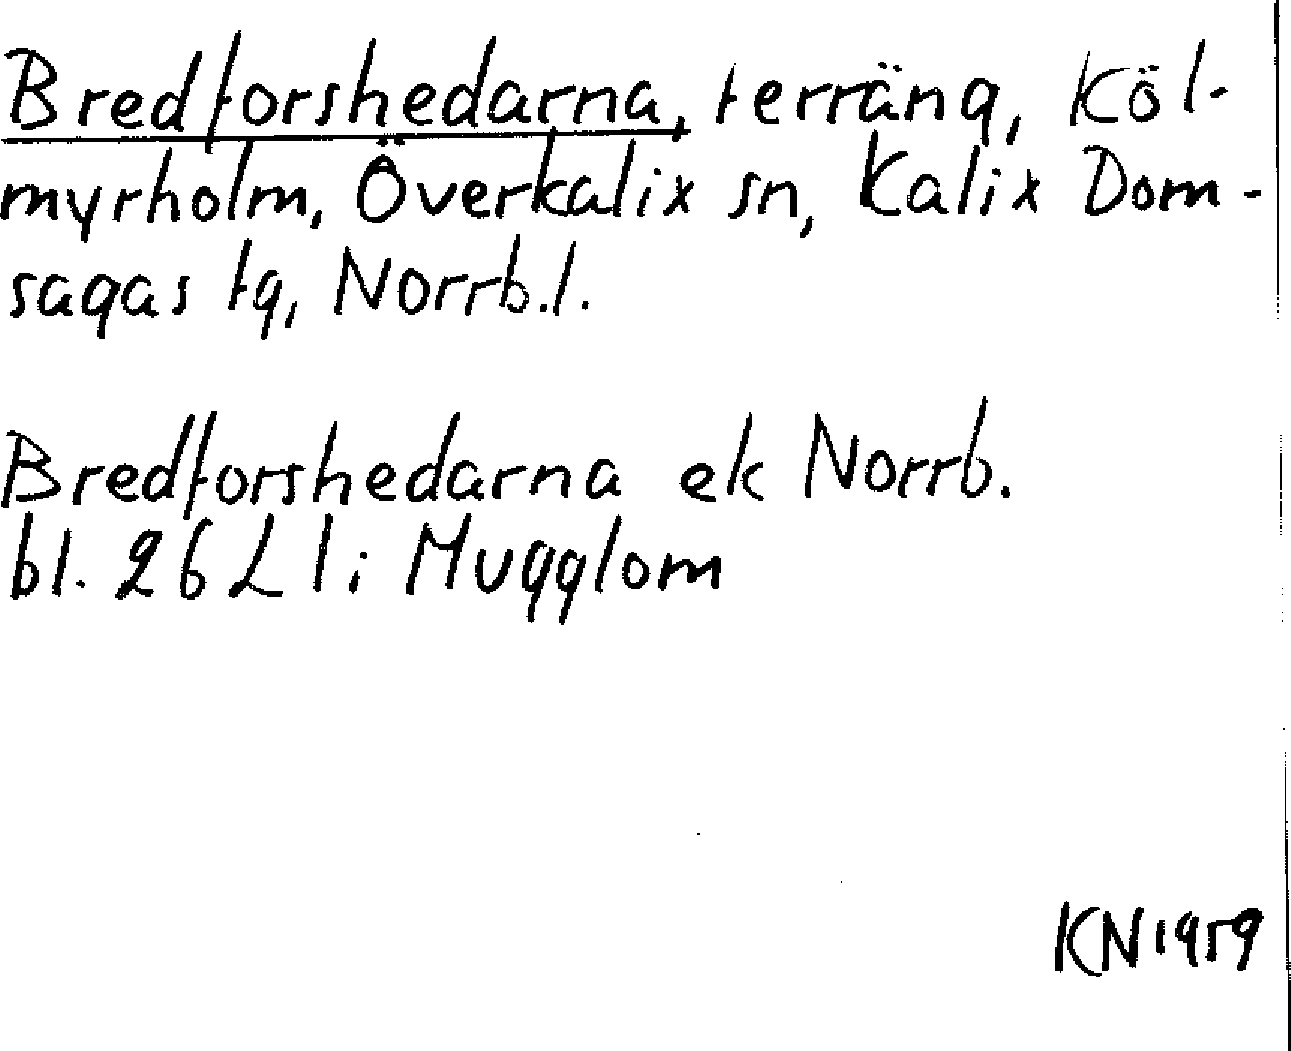 Bredforshedarna, terräng, Köl-
myrholm, Överkalix sn, Kalix Dom-
sagas tg, Norrb.l.
Bredforshedarna ek Norrb.
bl. 26 L l: Mugglom
KN 1959